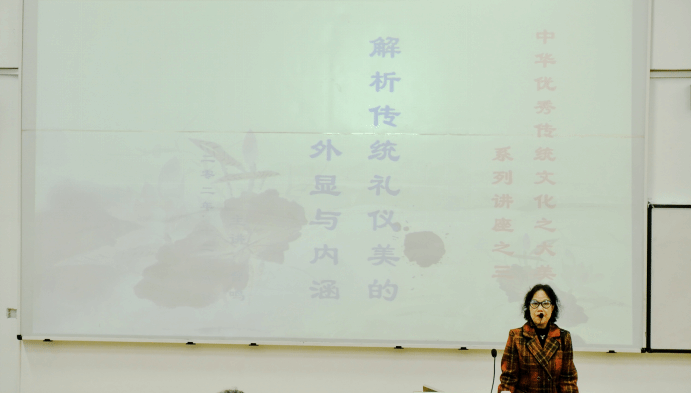 中华优秀传统文化之大美
系列讲座之三
解析传统礼仪美的
外显与内涵